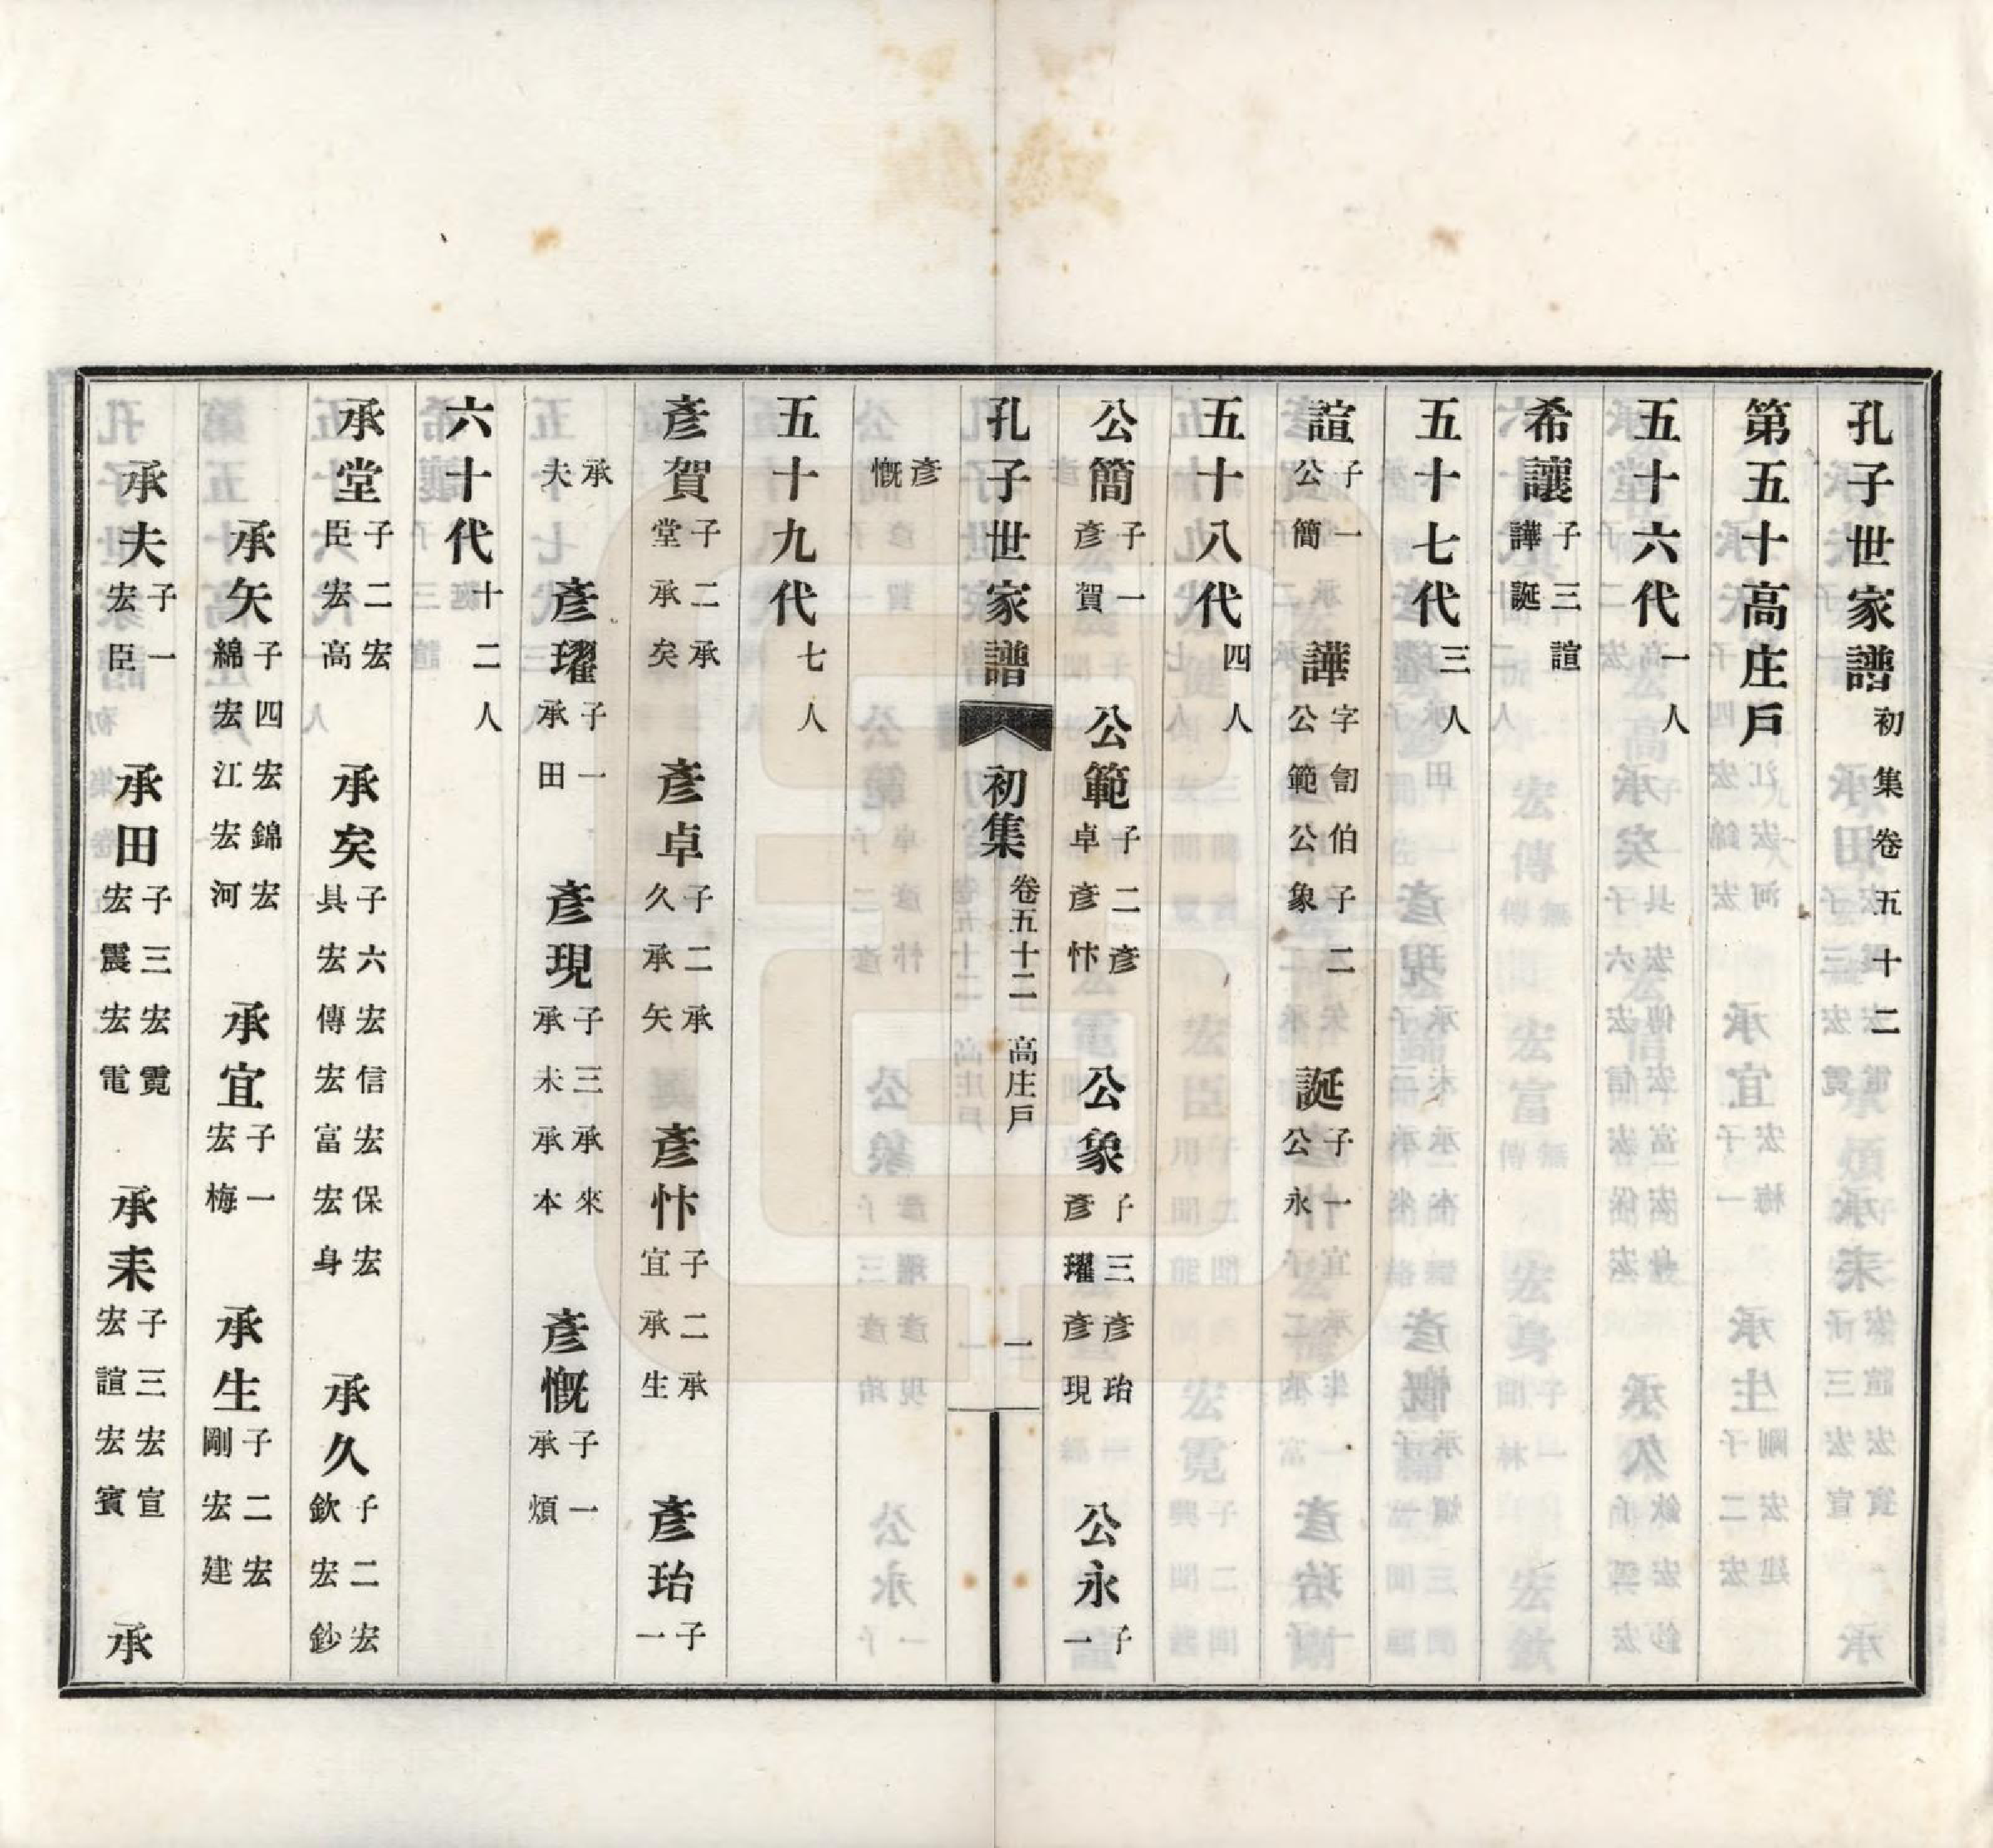 孔子世家譜初集卷五十二
第五十高庄戶
五十六代一人
希讓子三諠譁誕
五十七代三人
諠子一公簡　譁字訇伯子二公範公象　誕子一公永
五十八代四人
公簡子一彥賀　公範子二彥卓彥忭　公象子三彥珆彥瓘彥現　公永子一
孔子世家譜　初集　卷五十二　高庄戶　一
彥慨
五十九代七人
彥賀子二承堂承矣　彥卓子二承久承矢　彥忭子二承宜承生　彥珆子一
承夫　彥瓘子一承田　彥現子三承來承耒承本　彥慨子一承煩
六十代十二人
承堂子二宏臣宏高　承矣子六宏具宏信宏傳宏保宏富宏身　承久子二宏欽宏鈔
承矢子四宏綿宏錦宏江宏河　承宜子一宏梅　承生子二宏剛宏建
承夫子一宏臣　承田子三宏霓宏震宏電　承耒子三宏宣宏諠宏賓　承